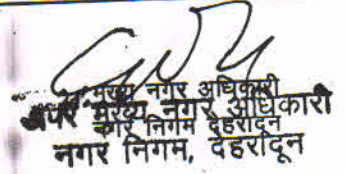 मुख्य नगर अधिकारी
अपर मुख्य नगर अधिकारी
नगर निगम देहरादून
नगर निगम, देहरादून